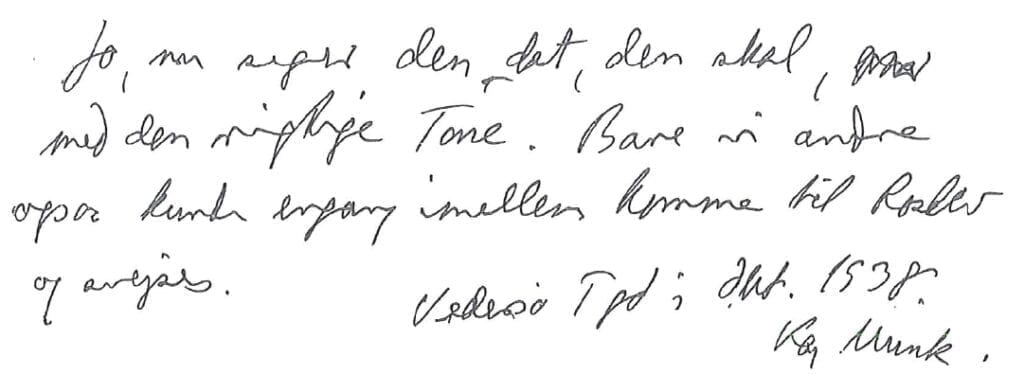 Jo, nu siger den det, den skal,
med den rigtige Tone. Bare vi andre
ogsaa kunde engang imellem komme til Roslev
og
Vedersø i Okt. 1938.
Kaj Munk.